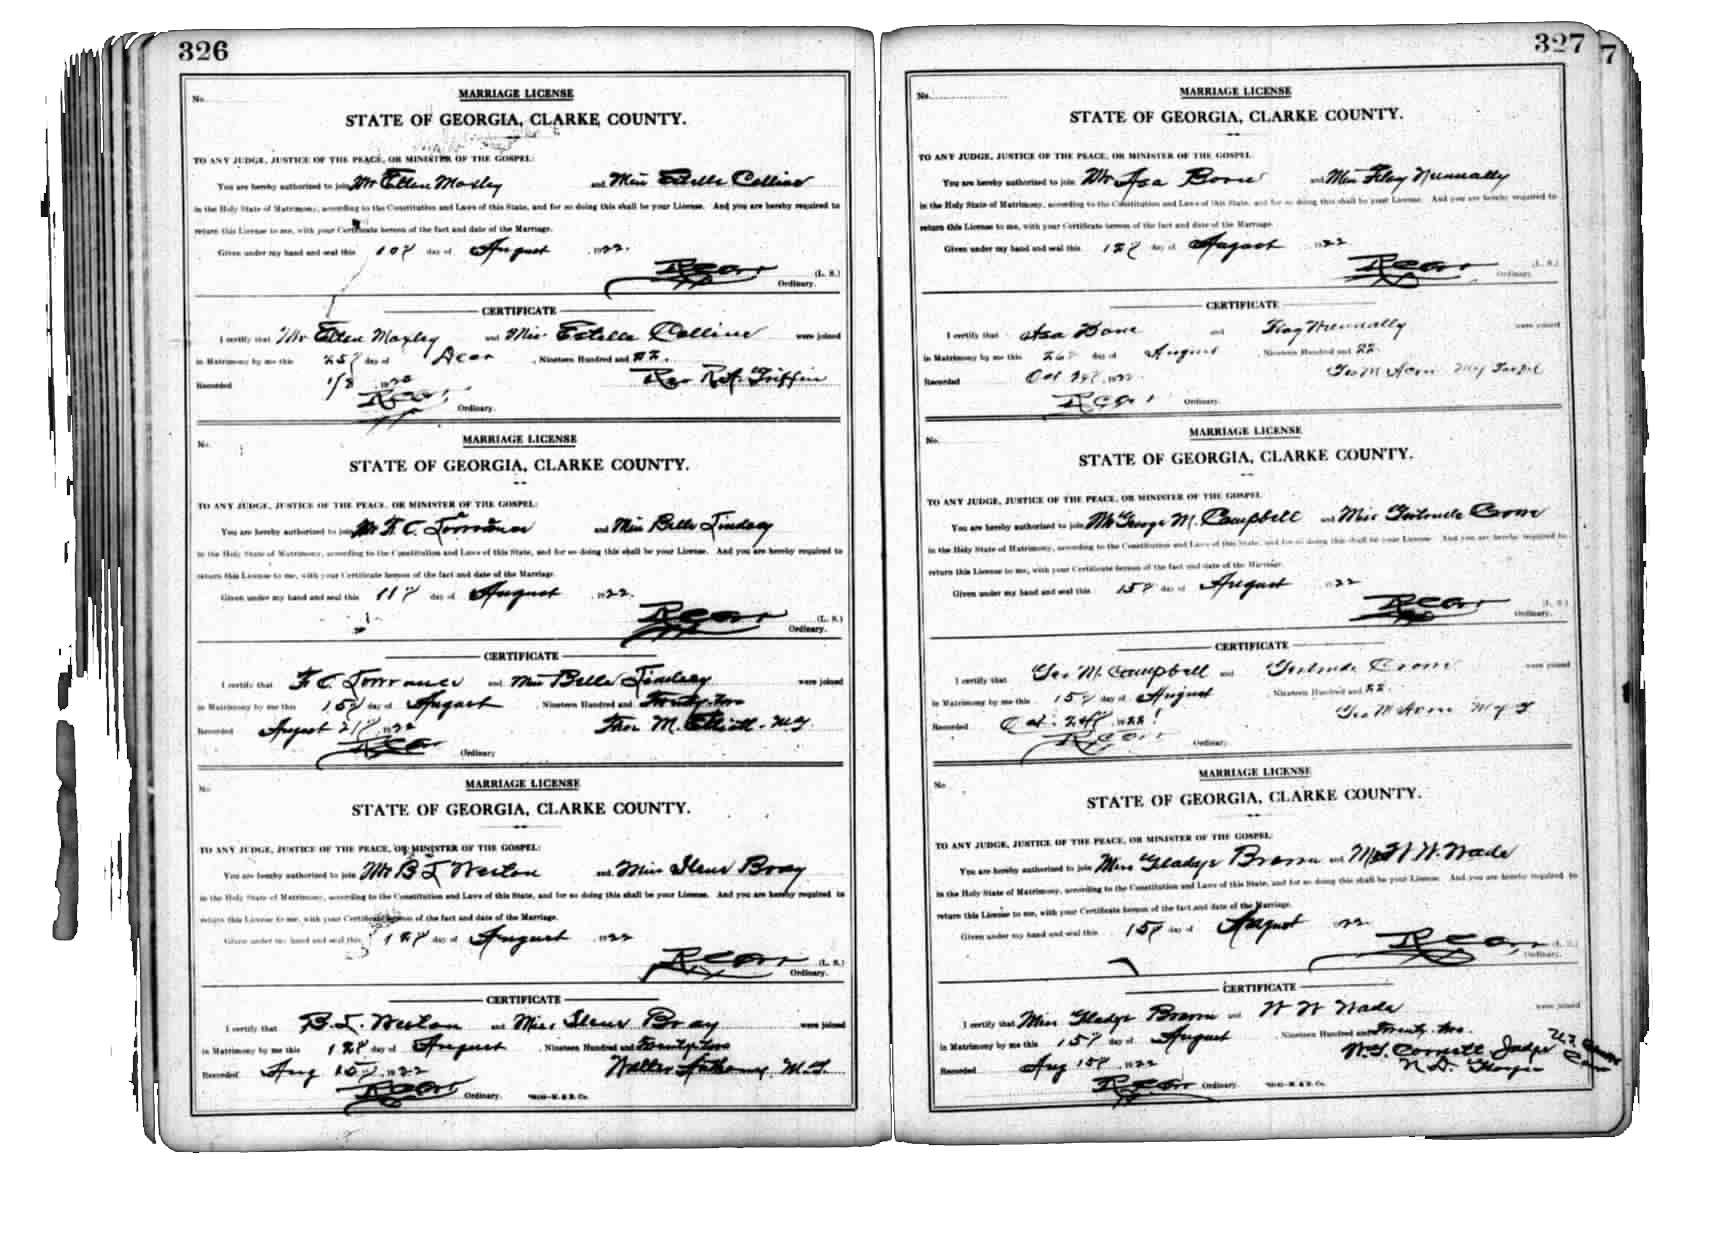 326
No.
MARRIAGE LICENSE
STATE OF GEORGIA, CLARKE COUNTY.
TO ANY JUDGE, JUSTICE OF THE PEACE, OR MINISTER OF THE GOSPEL:
You are hereby authorized to join Mr Moxley and Miss Estelle Collins
in the Holy State of Matrimony, according to the Constitution and Laws of this State, and for so doing this shall be your License. And you are hereby required to
return this License to me, with your Certificate hereon of the fact and date of the Marriage.
Given under my hand and seal this 10 day of August 1922.
(L. S.)
Ordinary.
CERTIFICATE
I certify that Mr Moxley and Miss Estella Collins were joined
in Matrimony by me this 25 day of , Nineteen Hundred and 22.
Recorded 1/8 Rev R.A. Griffin
Ordinary.
No.
MARRIAGE LICENSE
STATE OF GEORGIA, CLARKE COUNTY.
TO ANY JUDGE, JUSTICE OF THE PEACE, OR MINISTER OF THE GOSPEL:
You are hereby authorized to join Mr F. C. Torrance and Miss Belle Lindsey
in the Holy State of Matrimony, according to the Constitution and Laws of this State, and for so doing this shall be your License. And you are hereby required to
return this License to me, with your Certificate hereon of the fact and date of the Marriage.
Given under my hand and seal this 11 day of August 1922.
(L. S.)
Ordinary.
CERTIFICATE
I certify that F. C. Torrance and Miss Belle Lindsey were joined
in Matrimony by me this 15 day of August , Nineteen Hundred and Twenty two
Recorded August 21 1922 M. Elliott. M.G.
Ordinary.
No.
MARRIAGE LICENSE
STATE OF GEORGIA, CLARKE COUNTY.
TO ANY JUDGE, JUSTICE OF THE PEACE, OR MINISTER OF THE GOSPEL:
You are hereby authorized to join Mr B L Weston and Miss Ilene Bray
in the Holy State of Matrimony, according to the Constitution and Laws of this State, and for so doing this shall be your License. And you are hereby required to
return this License to me, with your Certificate hereon of the fact and date of the Marriage.
Given under my hand and seal this 12 day of August 1922
(L. S.)
Ordinary.
CERTIFICATE
I certify that B. L. Weston and Miss Ilene Bray were joined
in Matrimony by me this 12 day of August , Nineteen Hundred and Twenty two
Recorded Aug 15 1922 Walter Anthony, M.G.
Ordinary.
327
No.
MARRIAGE LICENSE
STATE OF GEORGIA, CLARKE COUNTY.
TO ANY JUDGE, JUSTICE OF THE PEACE, OR MINISTER OF THE GOSPEL
You are hereby authorized to join Mr Asa Bone and Miss Nunnally
in the Holy State of Matrimony, according to the Constitution and Laws of this State, and for so doing this shall be your License. And you are hereby required to
return this License to me, with your Certificate hereon of the fact and date of the Marriage.
Given under my hand and seal this 12 day of August 1922
(L. S.)
Ordinary.
CERTIFICATE
I certify that Asa Bone and Nunnally were joined
in Matrimony by me this 26 day of August , Nineteen Hundred and 22.
Recorded Oct 24 1922. Geo M Acree
Ordinary.
No.
MARRIAGE LICENSE
STATE OF GEORGIA, CLARKE COUNTY.
TO ANY JUDGE, JUSTICE OF THE PEACE, OR MINISTER OF THE GOSPEL
You are hereby authorized to join Mr George M. Campbell and Miss Gertrude Crow
in the Holy State of Matrimony, according to the Constitution and Laws of this State, and for so doing this shall be your License. And you are hereby required to
return this License to me, with your Certificate hereon of the fact and date of the Marriage.
Given under my hand and seal this 15 day of August 1922
(L. S.)
Ordinary.
CERTIFICATE
I certify that Geo M. Campbell and Gertrude Crow were joined
in Matrimony by me this 15 day of August , Nineteen Hundred and 22.
Recorded Oct. 24 1922 Geo M Acree M.G.
Ordinary.
No.
MARRIAGE LICENSE
STATE OF GEORGIA, CLARKE COUNTY.
TO ANY JUDGE, JUSTICE OF THE PEACE, OR MINISTER OF THE GOSPEL:
You are hereby authorized to join Miss Gladys Brown and Mr W. W. Wade
in the Holy State of Matrimony, according to the Constitution and Laws of this State, and for so doing this shall be your License. And you are hereby required to
return this License to me, with your Certificate hereon of the fact and date of the Marriage.
Given under my hand and seal this 15 day of August 1922
(L. S.)
Ordinary.
CERTIFICATE
I certify that Miss Gladys Brown and W W Wade were joined
in Matrimony by me this 15 day of August Nineteen Hundred and Twenty-two.
Recorded Aug 15 1922 Judge
Ordinary. N. D. Georgia